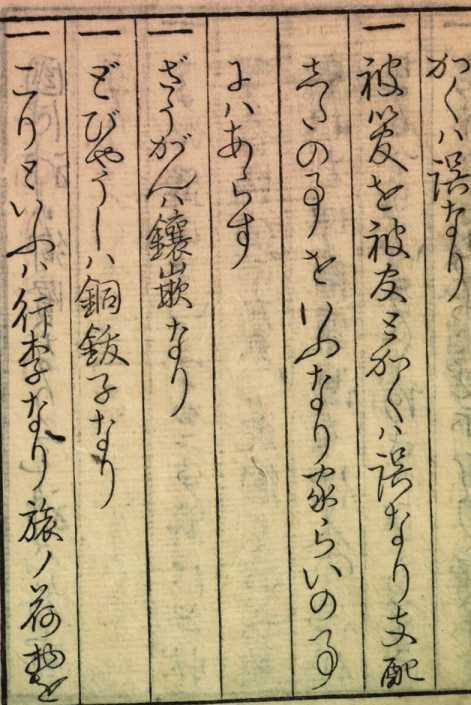 かくハ誤なり
一 被管を被友とかくハ誤なり支配
したの事をいふなり家らいの事
にハあらす
一 ざうがんハ鑲嵌なり
一 どびやうしハ銅鈸子なり
一 こりといふハ行李なり旅ノ荷物を